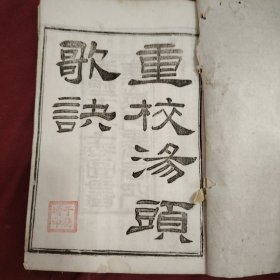 重校湯頭
歌訣